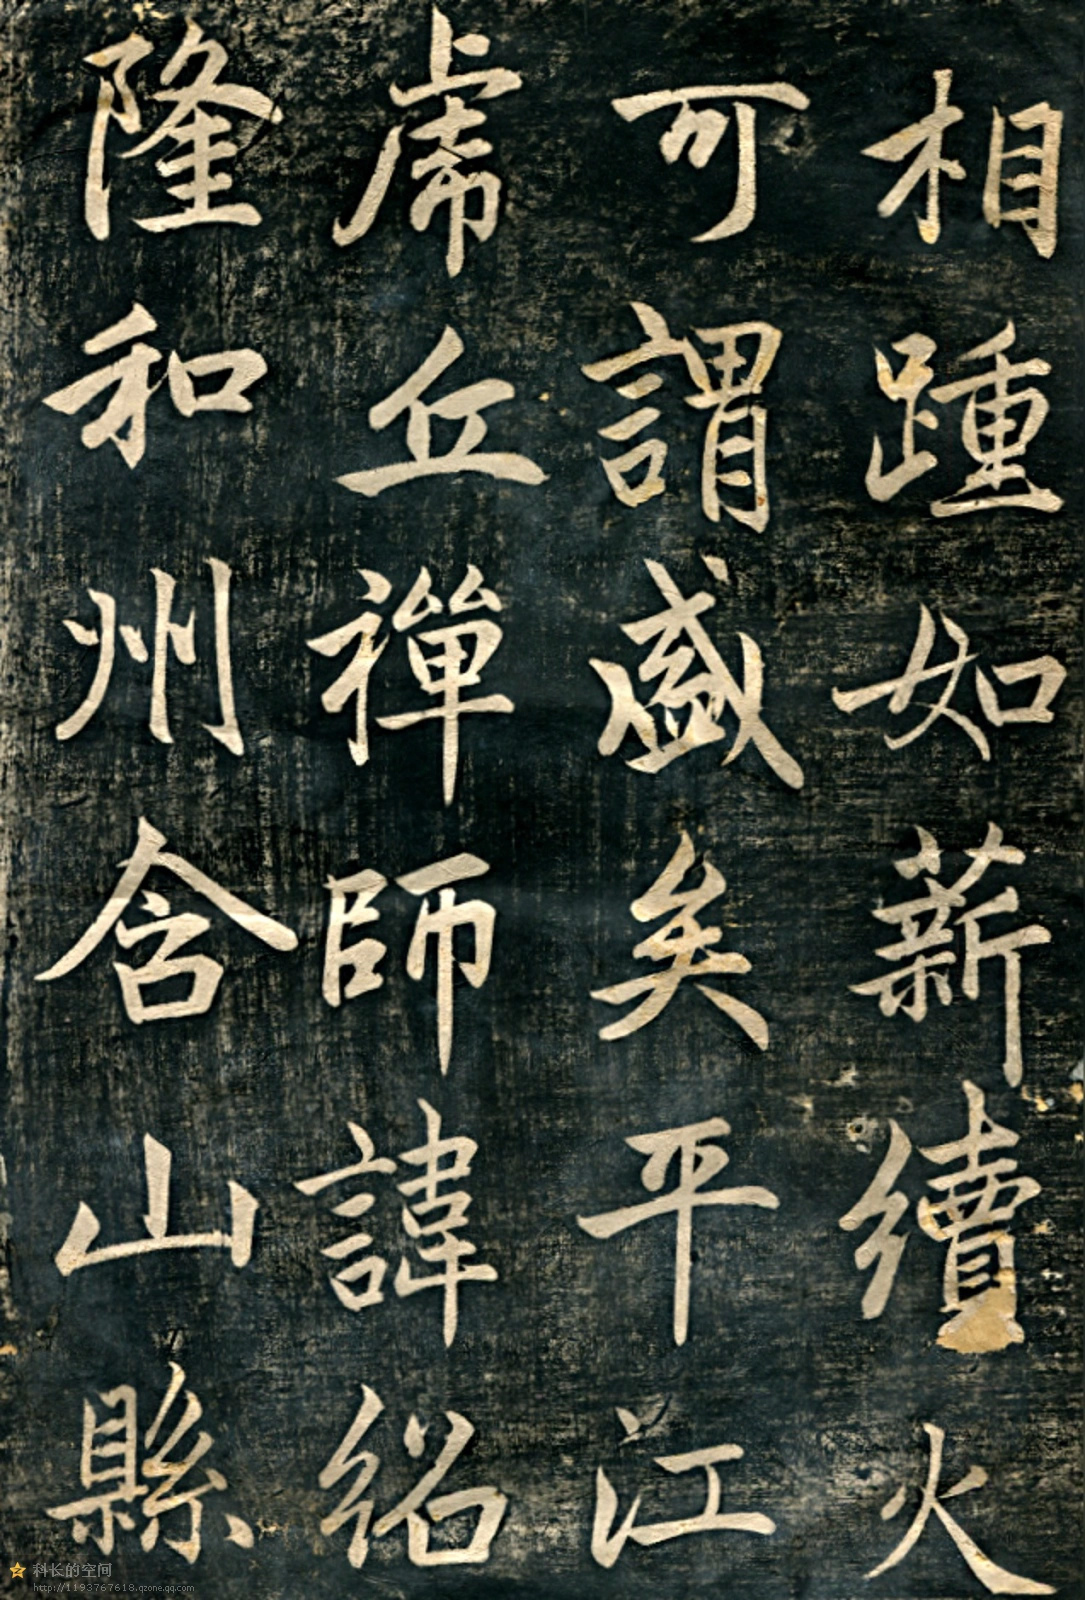 相踵如薪續火
可謂盛矣平江
虎丘禪師諱紹
隆和州含山縣
科长的空间
http://1193767618.qzone.qq.com